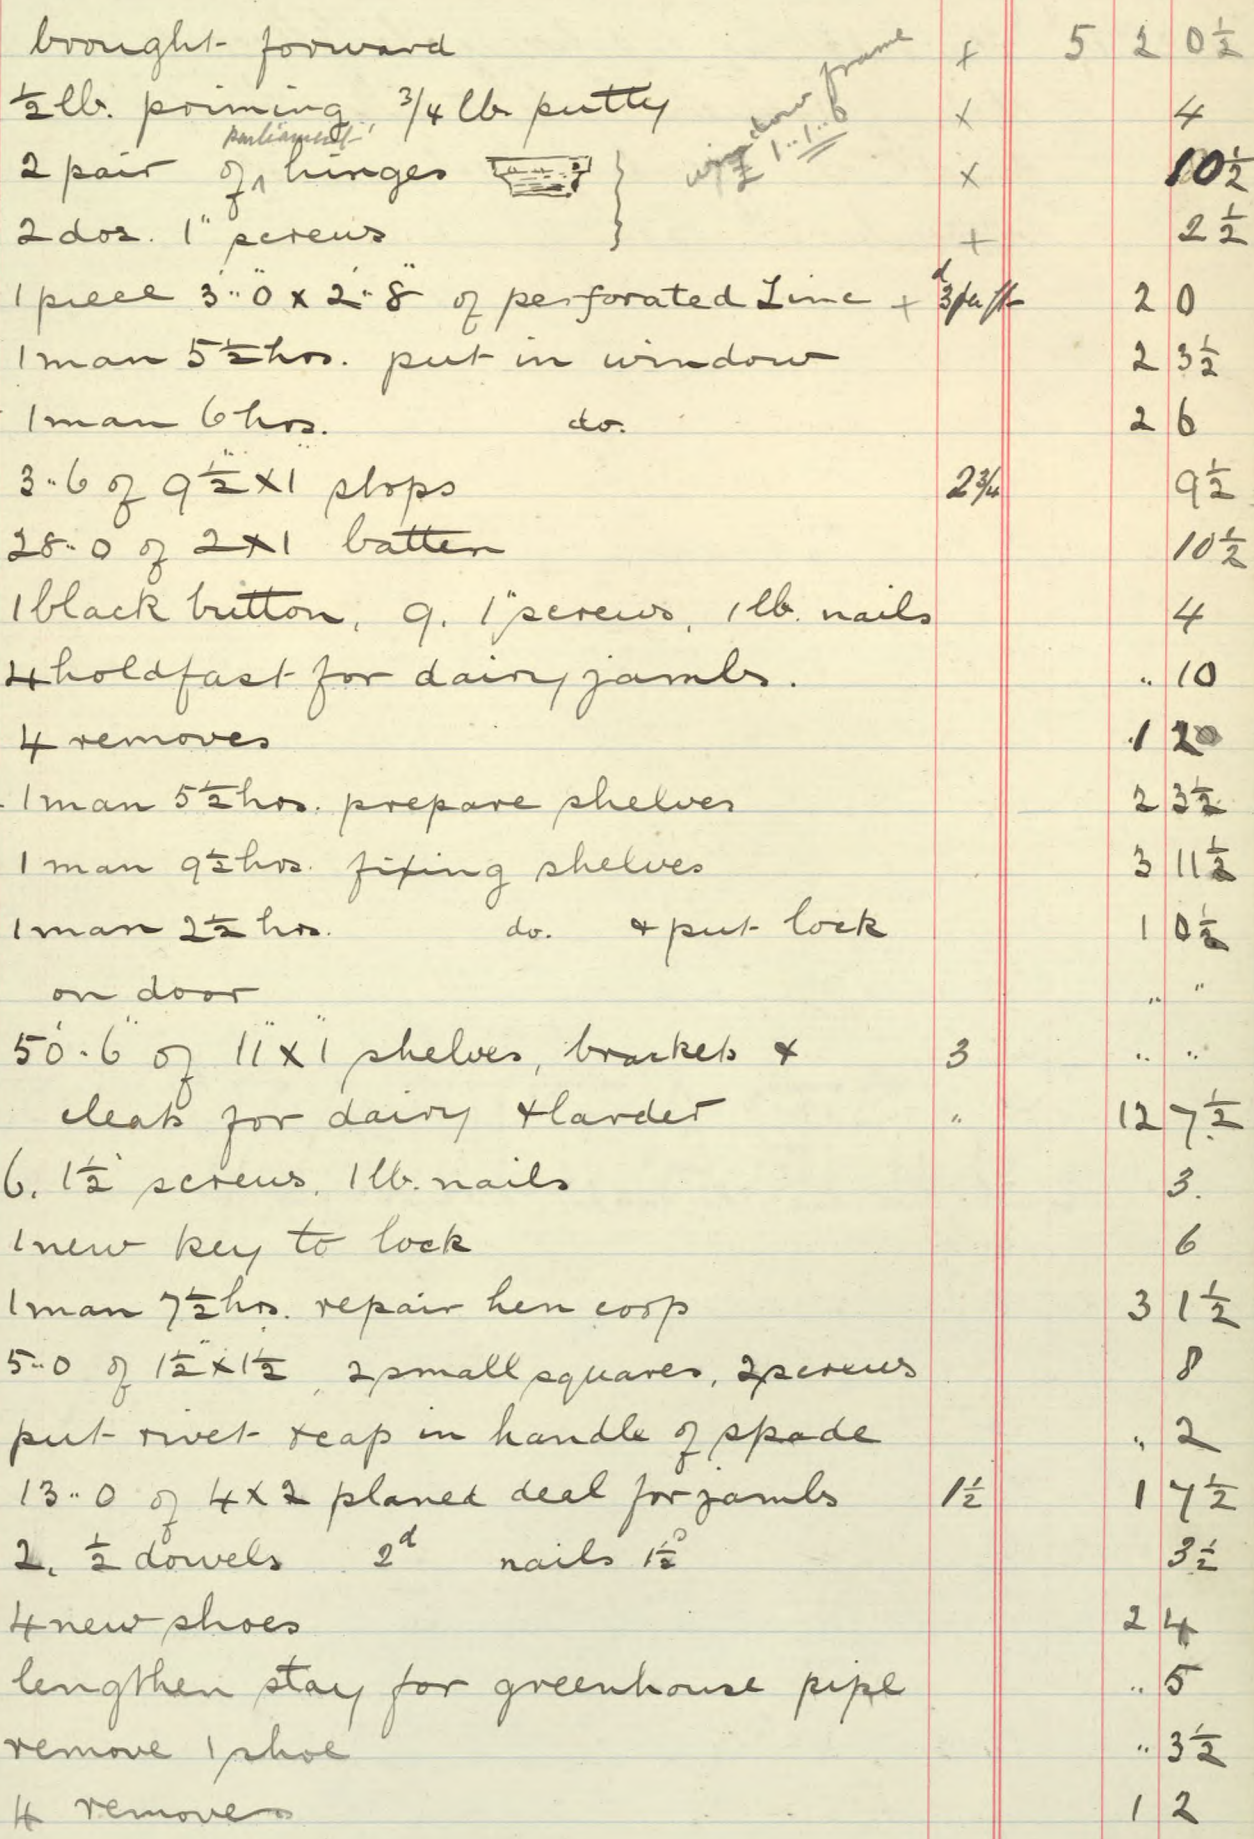 brought forward + 5 2 0½
½ lb. priming, ¾ lb putty x 4
parliament
2 pair of ^ hinges } x 10½
window frame
£ 1..1..6
2 doz. 1" screws + 2½
1 piece 3'..0" x 2'..8" of perforated Zinc + 3d pr ft 2 0
1 man 5½ hrs. put in window 2 3½
1 man 6 hrs. do. 2 6
3..6 of 9½" x 1" slops 2¾ 9½
28..0 of 2 x 1 batten 10½
1 black button, 9. 1" screws, 1 lb. nails 4
4 holdfast for dairy jambs. .. 10
4 removes 1 2
1 man 5½ hrs. prepare shelves 2 3½
1 man 9½ hrs. fixing shelves 3 11½
1 man 2½ hrs. do. & put lock 1 0½
on door .. "
50'..6" of 11" x 1" shelves, brackets & 3 .. ..
cleats for dairy & larder " 12 7½
6. 1½" screws, 1 lb. nails 3.
1 new key to lock 6
1 man 7½ hrs. repair hen coop 3 1½
5..0 of 1½" x 1½, 2 small squares, 2 screws 8
put rivet & cap in handle of spade .. 2
13..0 of 4 x 2 planed deal for jambs 1½ 1 7½
2. ½ dowels 2d nails 1½ 3½
4 new shoes 2 4
lengthen stay for greenhouse pipe .. 5
remove 1 shoe .. 3½
4 removes 1 2